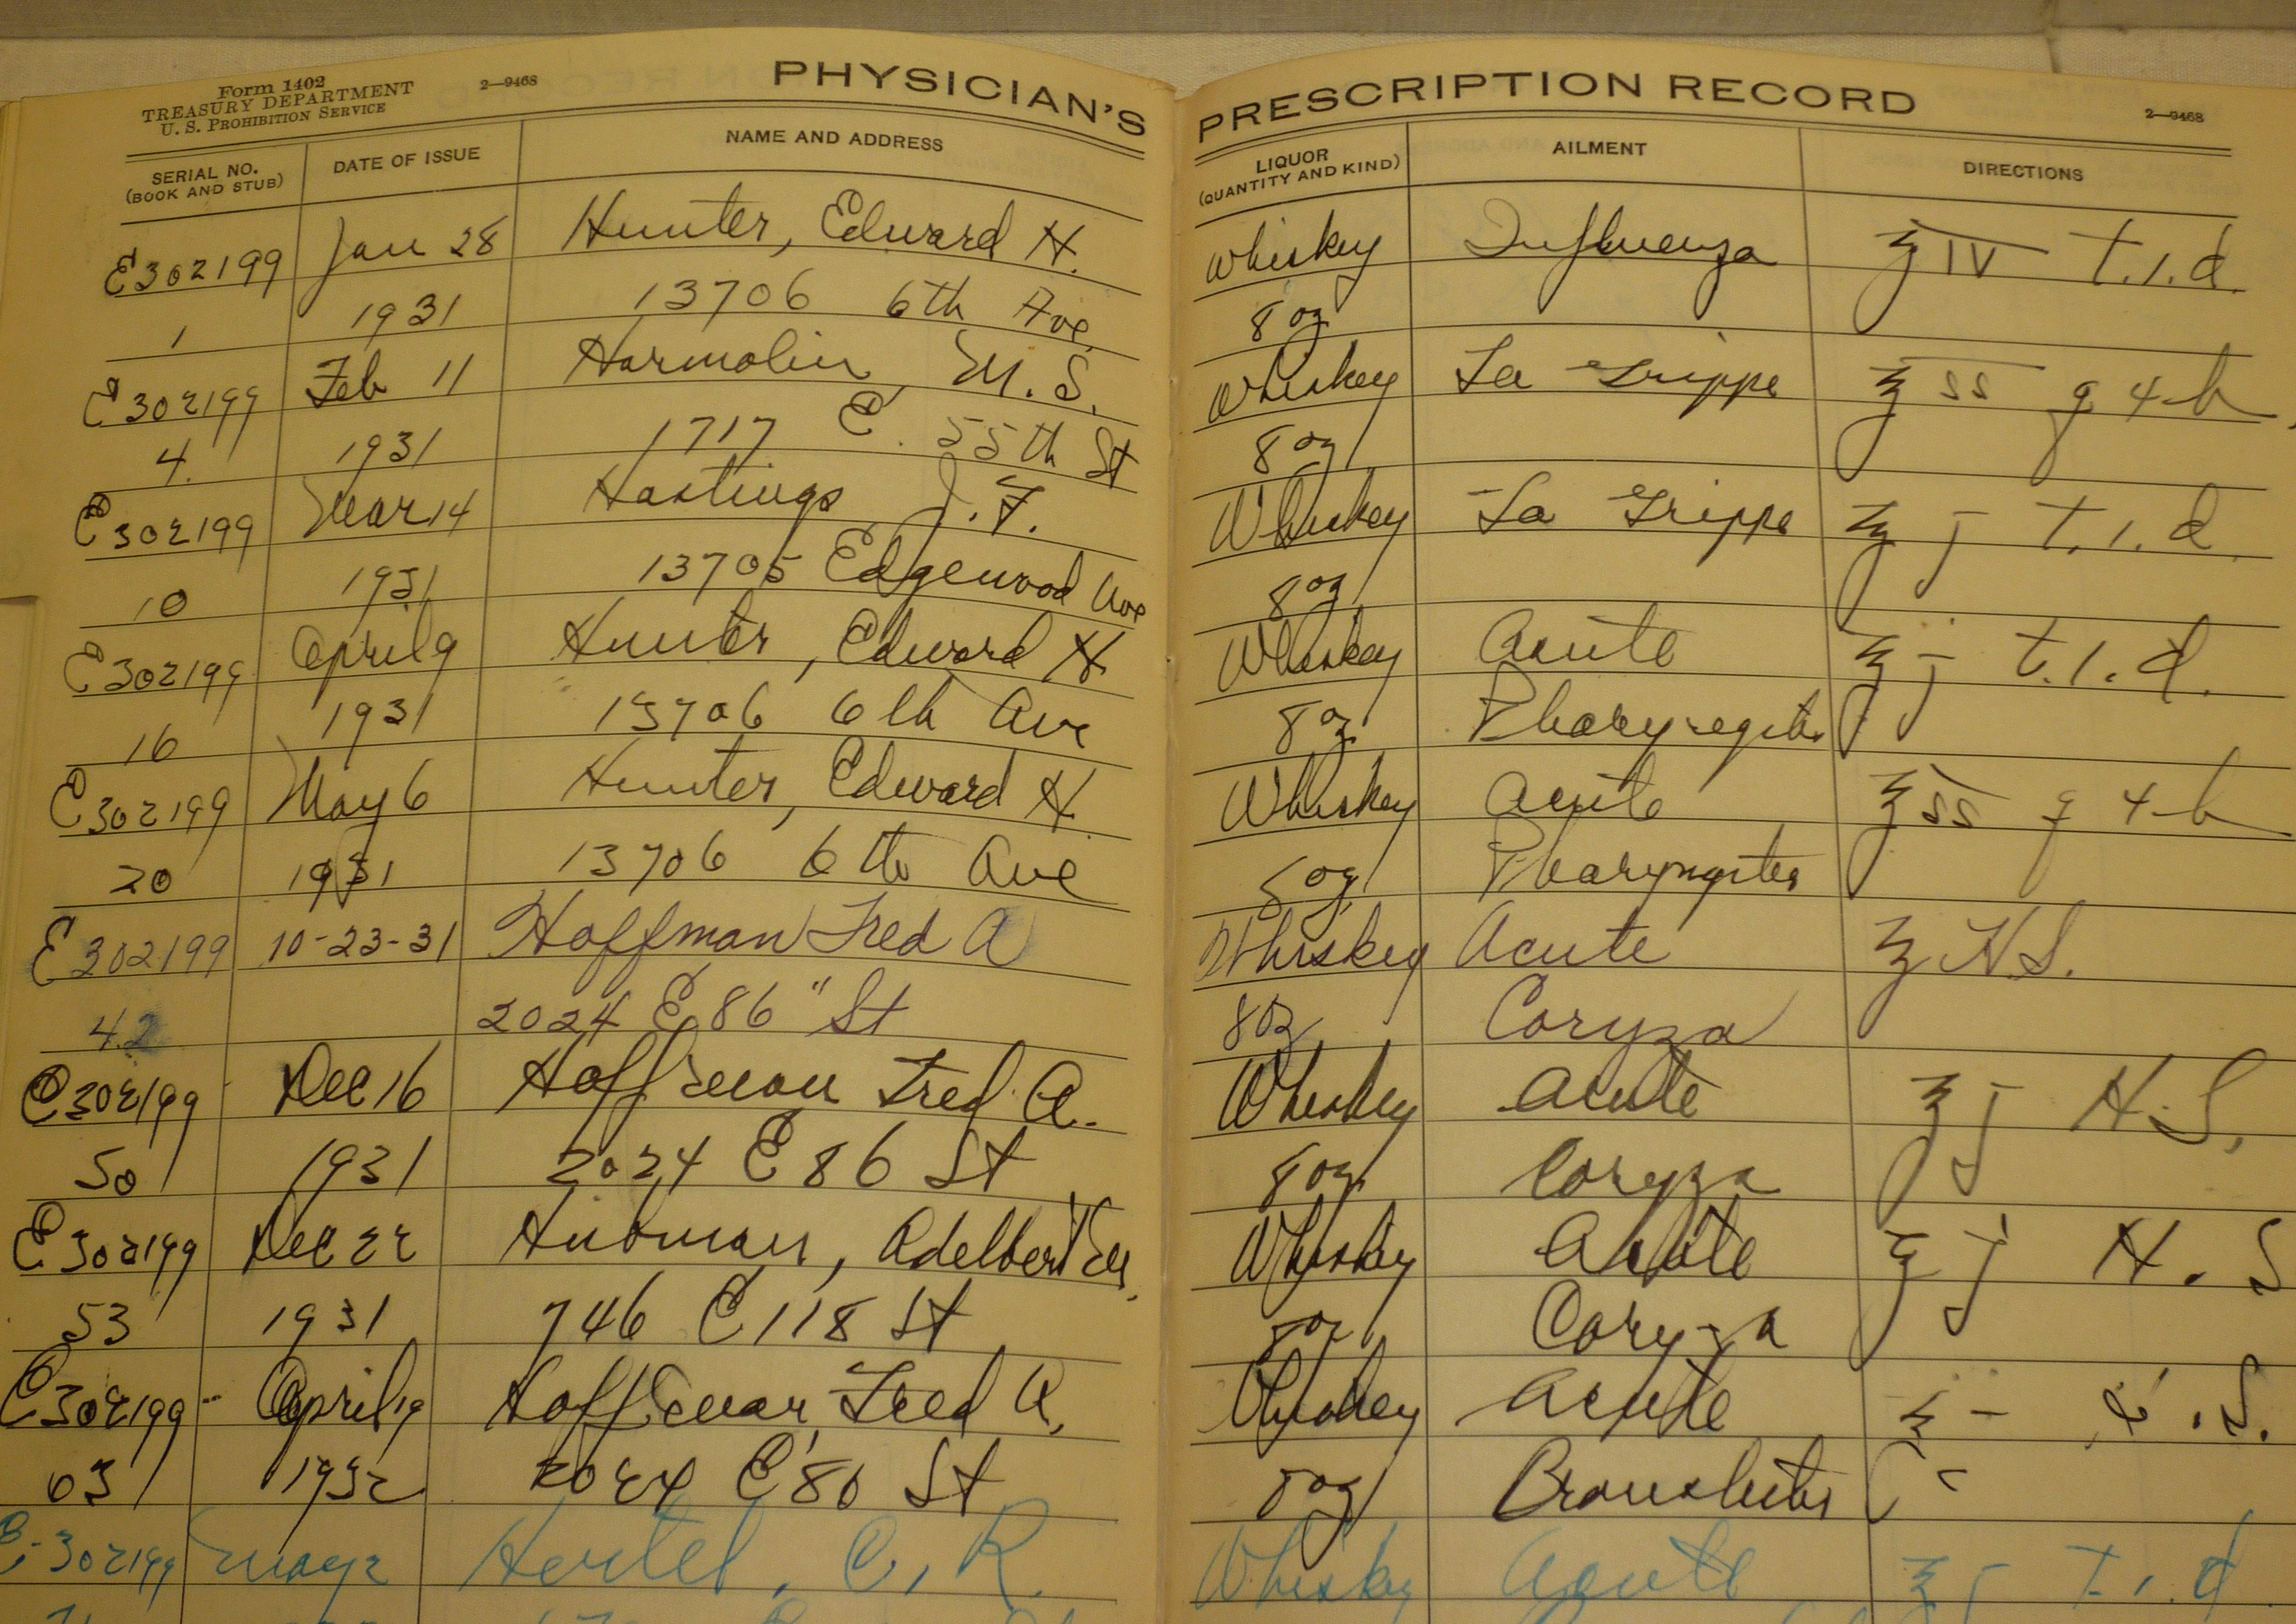 Form 1402
TREASURY DEPARTMENT
U. S. PROHIBITION SERVICE
2—9468
PHYSICIAN'S PRESCRIPTION RECORD
2—9468
SERIAL NO. (BOOK AND STUB) DATE OF ISSUE NAME AND ADDRESS LIQUOR (QUANTITY AND KIND) AILMENT DIRECTIONS
E302199 Jan 28 Hunter, Edward H. Whiskey Influenza ʒ IV t.i.d.
1 1931 13706 6th Ave. 8 oz
E302199 Feb 11 Harmolin, M. S. Whiskey La Grippe ℥ ss q 4 h
4. 1931 1717 E. 55th St 8 oz
E302199 Mar 14 Hastings J. F. Whiskey La Grippe ℥ j t.i.d.
10 1931 13705 Edgewood Ave 8 oz
E302199 April 9 Hunter, Edward H Whiskey Acute ℥ j t.i.d.
16 1931 13706 6th Ave 8 oz Pharyngitis
E302199 May 6 Hunter, Edward H. Whiskey Acute ℥ ss q 4 h
20 1931 13706 6th Ave 8 oz Pharyngitis
E302199 10-23-31 Hoffman Fred A Whiskey Acute ℥ H.S.
42 2024 E 86" St 8 oz Coryza
E302199 Dec 16 Hoffman Fred A. Whiskey Acute ℥ j H.S.
50 1931 2024 E 86 St 8 oz Coryza
E302199 Dec 22 Adelbert Whiskey Acute ℥ j H.S
53 1931 746 E 118 St 8 oz Coryza
E302199 April 19 Hoffman, Fred A. Whiskey Acute ℥ .S.
63 1932 2024 E 86 St 8 oz Bronchitis
E-302199 May 2 Hertel, C. R. Whiskey Acute ℥ j t.i.d